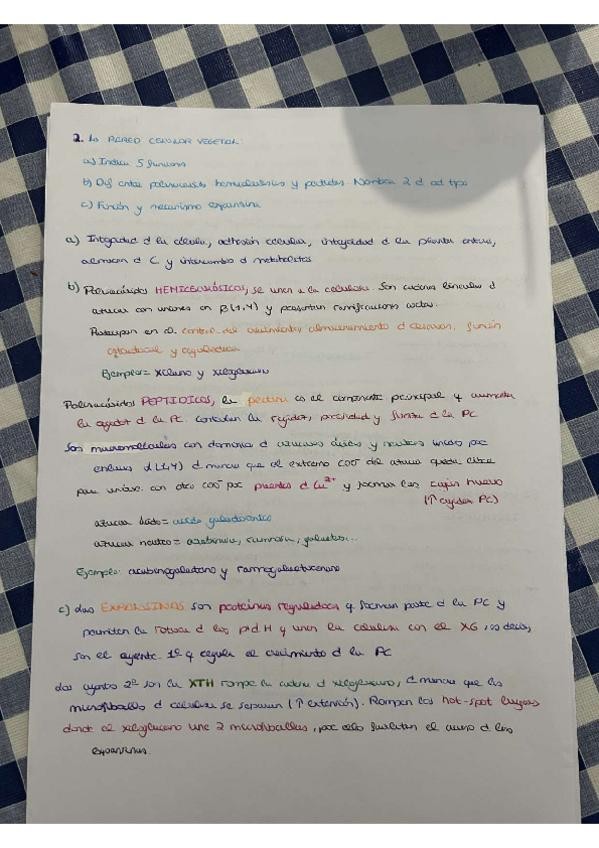 2. La PARED CELULAR VEGETAL:
a) Indica 5 funciones
b) Dif entre polisacáridos hemicelulósicos y péctidos. Nombra 2 d cd tipo
c) Función y mecanismo expansina
a) Integridad d la célula, adhesión celular, integridad d la planta entera,
almacen d C y intercambio d metabolitos
b) Polisacáridos HEMICELULÓSICOS, se unen a la celulosa. Son cadenas lineales d
azucar con uniones en β(1,4) y presentan ramificaciones cortas.
Participan en el control del crecimiento, almacenamiento d reservas, función
estructural y reguladora
Ejemplos = xilano y xiloglucano
Polisacáridos PEPTIDICOS, la pectina es el componente principal y aumenta
la rigidez d la PC. Controlan la rigidez, porosidad y fuerza d la PC
Son macromoléculas con dominios d azucares ácidos y neutros unidos por
enlaces α(1,4) d manera que el extremo COO⁻ del azucar queda libre
para unirse con otro COO⁻ por puentes d Ca²⁺ y forman las cajas huevo
(↑ rigidez PC)
azucar ácido = ácido galacturónico
azucar neutro = arabinosa, ramnosa, galactosa...
Ejemplo: arabinogalactano y ramnogalacturonano
c) Las EXPANSINAS son proteínas reguladoras q forman parte d la PC y
permiten la rotura d los pd H q unen la celulosa con el XG, es decir,
son el agente 1º q regula el crecimiento d la PC
Los agentes 2º son la XTH rompe la cadena d xiloglucano, d manera que las
microfibrillas d celulosa se separan (↑ extensión). Rompen los hot-spot lugares
donde el xiloglucano une 2 microfibrillas, por ello facilitan el acceso d las
expansinas.